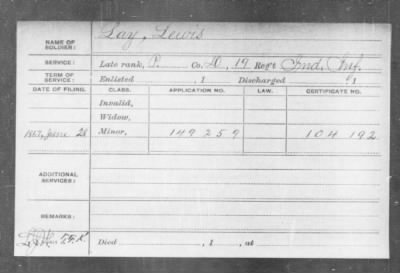 NAME OF SOLDIER: Lay, Lewis
SERVICE: Late rank, P. Co. D, 19 Reg't Ind. Inf.
TERM OF SERVICE: Enlisted , 1 Discharged , 1
DATE OF FILING. CLASS. APPLICATION NO. LAW. CERTIFICATE NO.
Invalid,
Widow,
1867, June 28 Minor, 149 259 104 192
ADDITIONAL SERVICES:
REMARKS:
Died , 1 , at